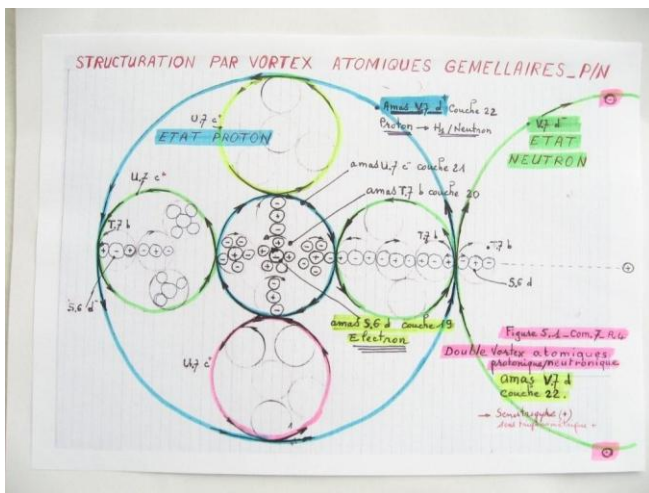 STRUCTURATION PAR VORTEX ATOMIQUES GEMELLAIRES_P/N
U.7 c⁺
ETAT PROTON
Amas V.7 d⁺ Couche 22
Proton → H₁/Neutron
V.7 d⁻
ETAT
NEUTRON
amas U.7 c⁻ couche 21
amas T.7 b couche 20
U.7 c⁺
T.7 b
S.6 d⁻
T.7 b
T.7 b
S.6 d
amas S.6 d couche 19
Electron
U.7 c⁺
Figure 5.1_Com.7.R.4
Double Vortex atomiques
protonique/neutronique
amas V.7 d
couche 22.
→ Sens